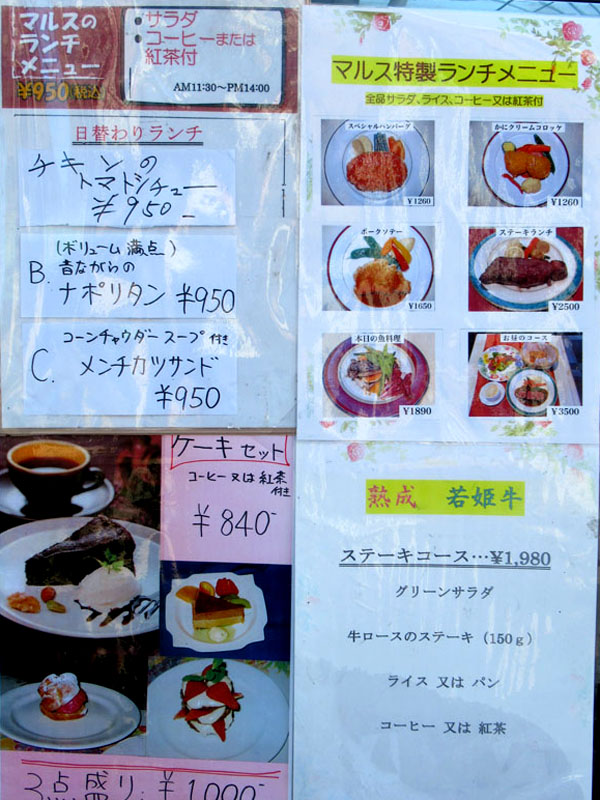 マルスの
ランチ
メニュー
¥950 税込
・サラダ
・コーヒーまたは
紅茶付
AM11:30～PM14:00
日替わりランチ
チキンの
トマトシチュー
¥950-
(ボリューム満点)
B. 昔ながらの
ナポリタン ¥950
コーンチャウダースープ付き
C. メンチカツサンド
¥950
ケーキセット
コーヒー又は紅茶
付き
¥840-
3点盛り ¥1000-
マルス特製ランチメニュー
全品サラダ、ライス、コーヒー又は紅茶付
スペシャルハンバーグ
¥1260
かにクリームコロッケ
¥1260
ポークソテー
¥1650
ステーキランチ
¥2500
本日の魚料理
¥1890
お昼のコース
¥3500
熟成 若姫牛
ステーキコース…¥1,980
グリーンサラダ
牛ロースのステーキ（150g）
ライス 又は パン
コーヒー 又は 紅茶